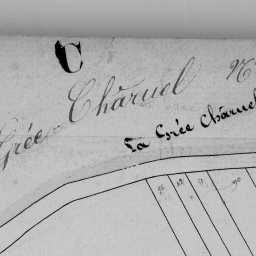 C
Grée Chàruel N
La Grée Chàruel